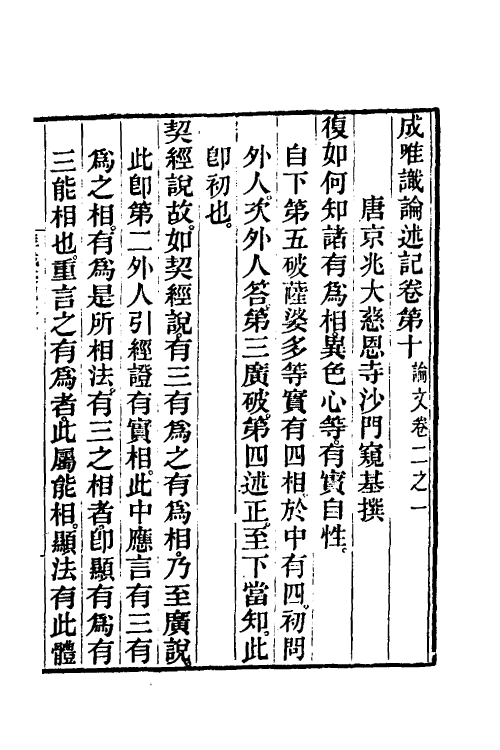 成唯識論述記卷第十 論文卷二之一
唐京兆大慈恩寺沙門窺基撰
復如何知諸有爲相。異色心等。有實自性。
自下第五破薩婆多等實有四相。於中有四。初問
外人。次外人答。第三廣破。第四述正。至下當知。此
卽初也。
契經說故。如契經說。有三有爲之有爲相。乃至廣說。
此卽第二外人引經證有實相。此中應言有三有
爲之相。有爲是所相法。有三之相者。卽顯有爲有
三能相也。重言之有爲者。此屬能相。顯法有此體